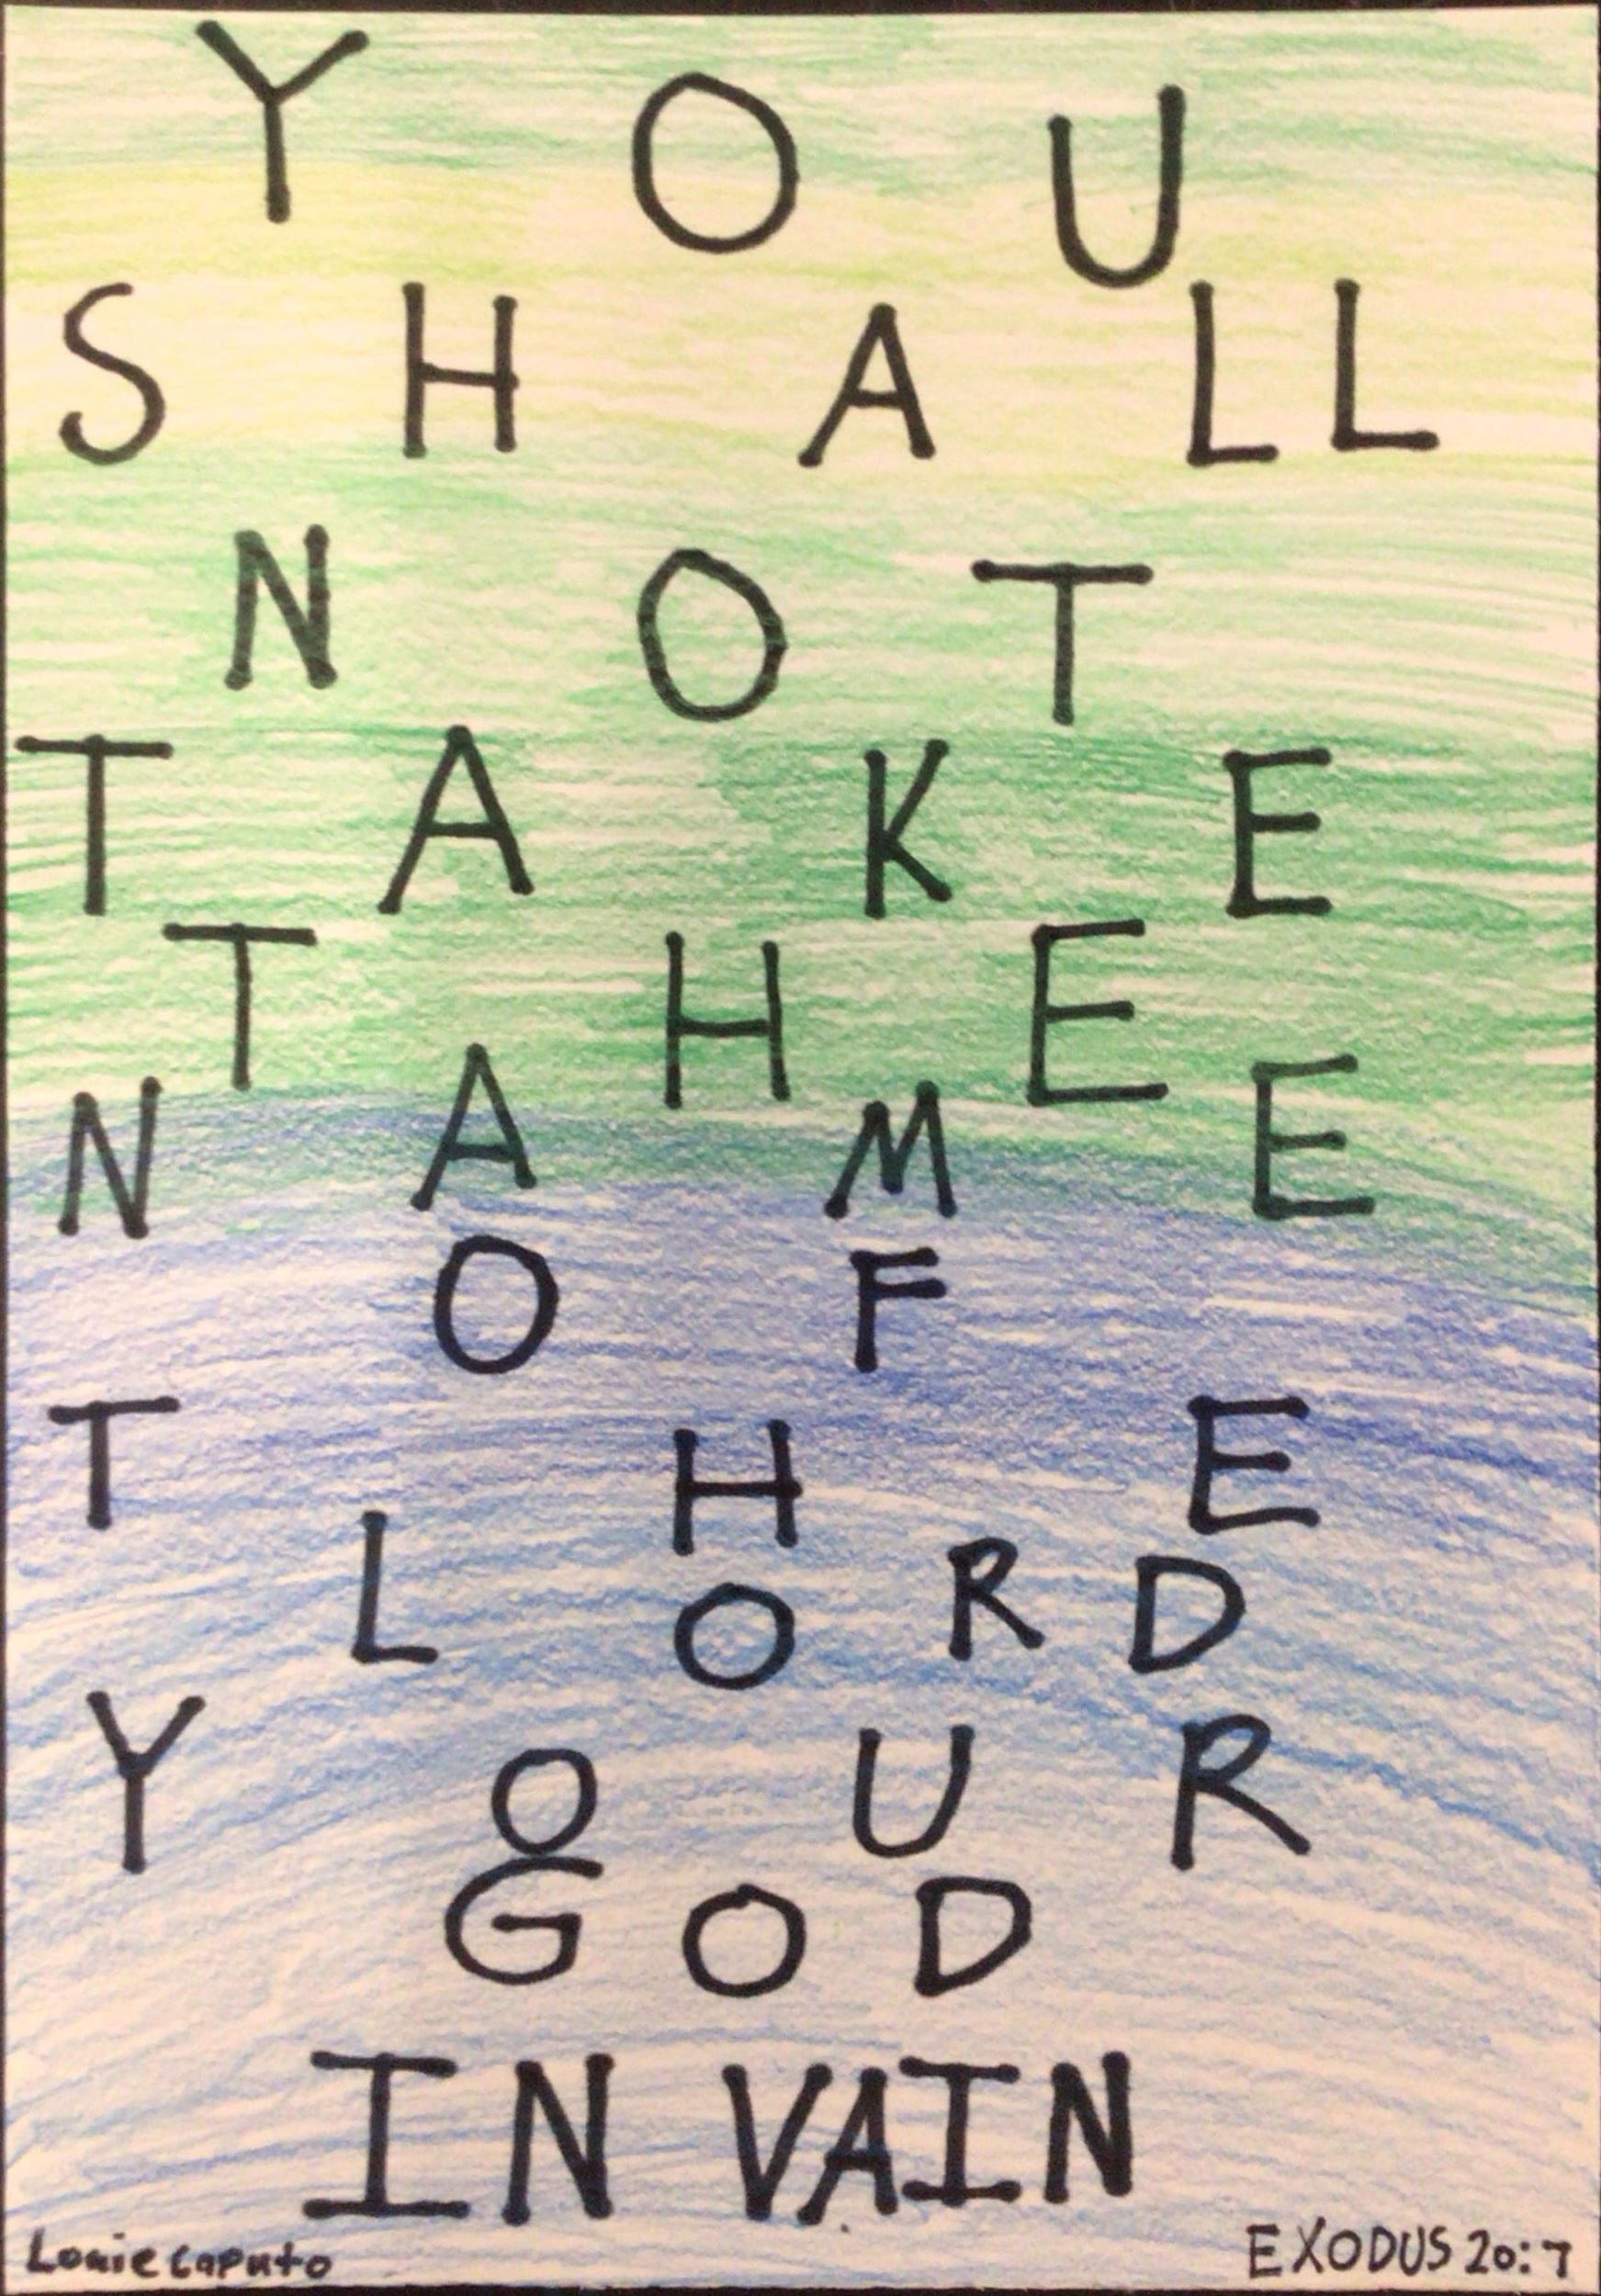 YOU
SHALL
NOT
TAKE
THE
NAME
OF
THE
LORD
YOUR
GOD
IN VAIN
Louie Caputo
EXODUS 20:7